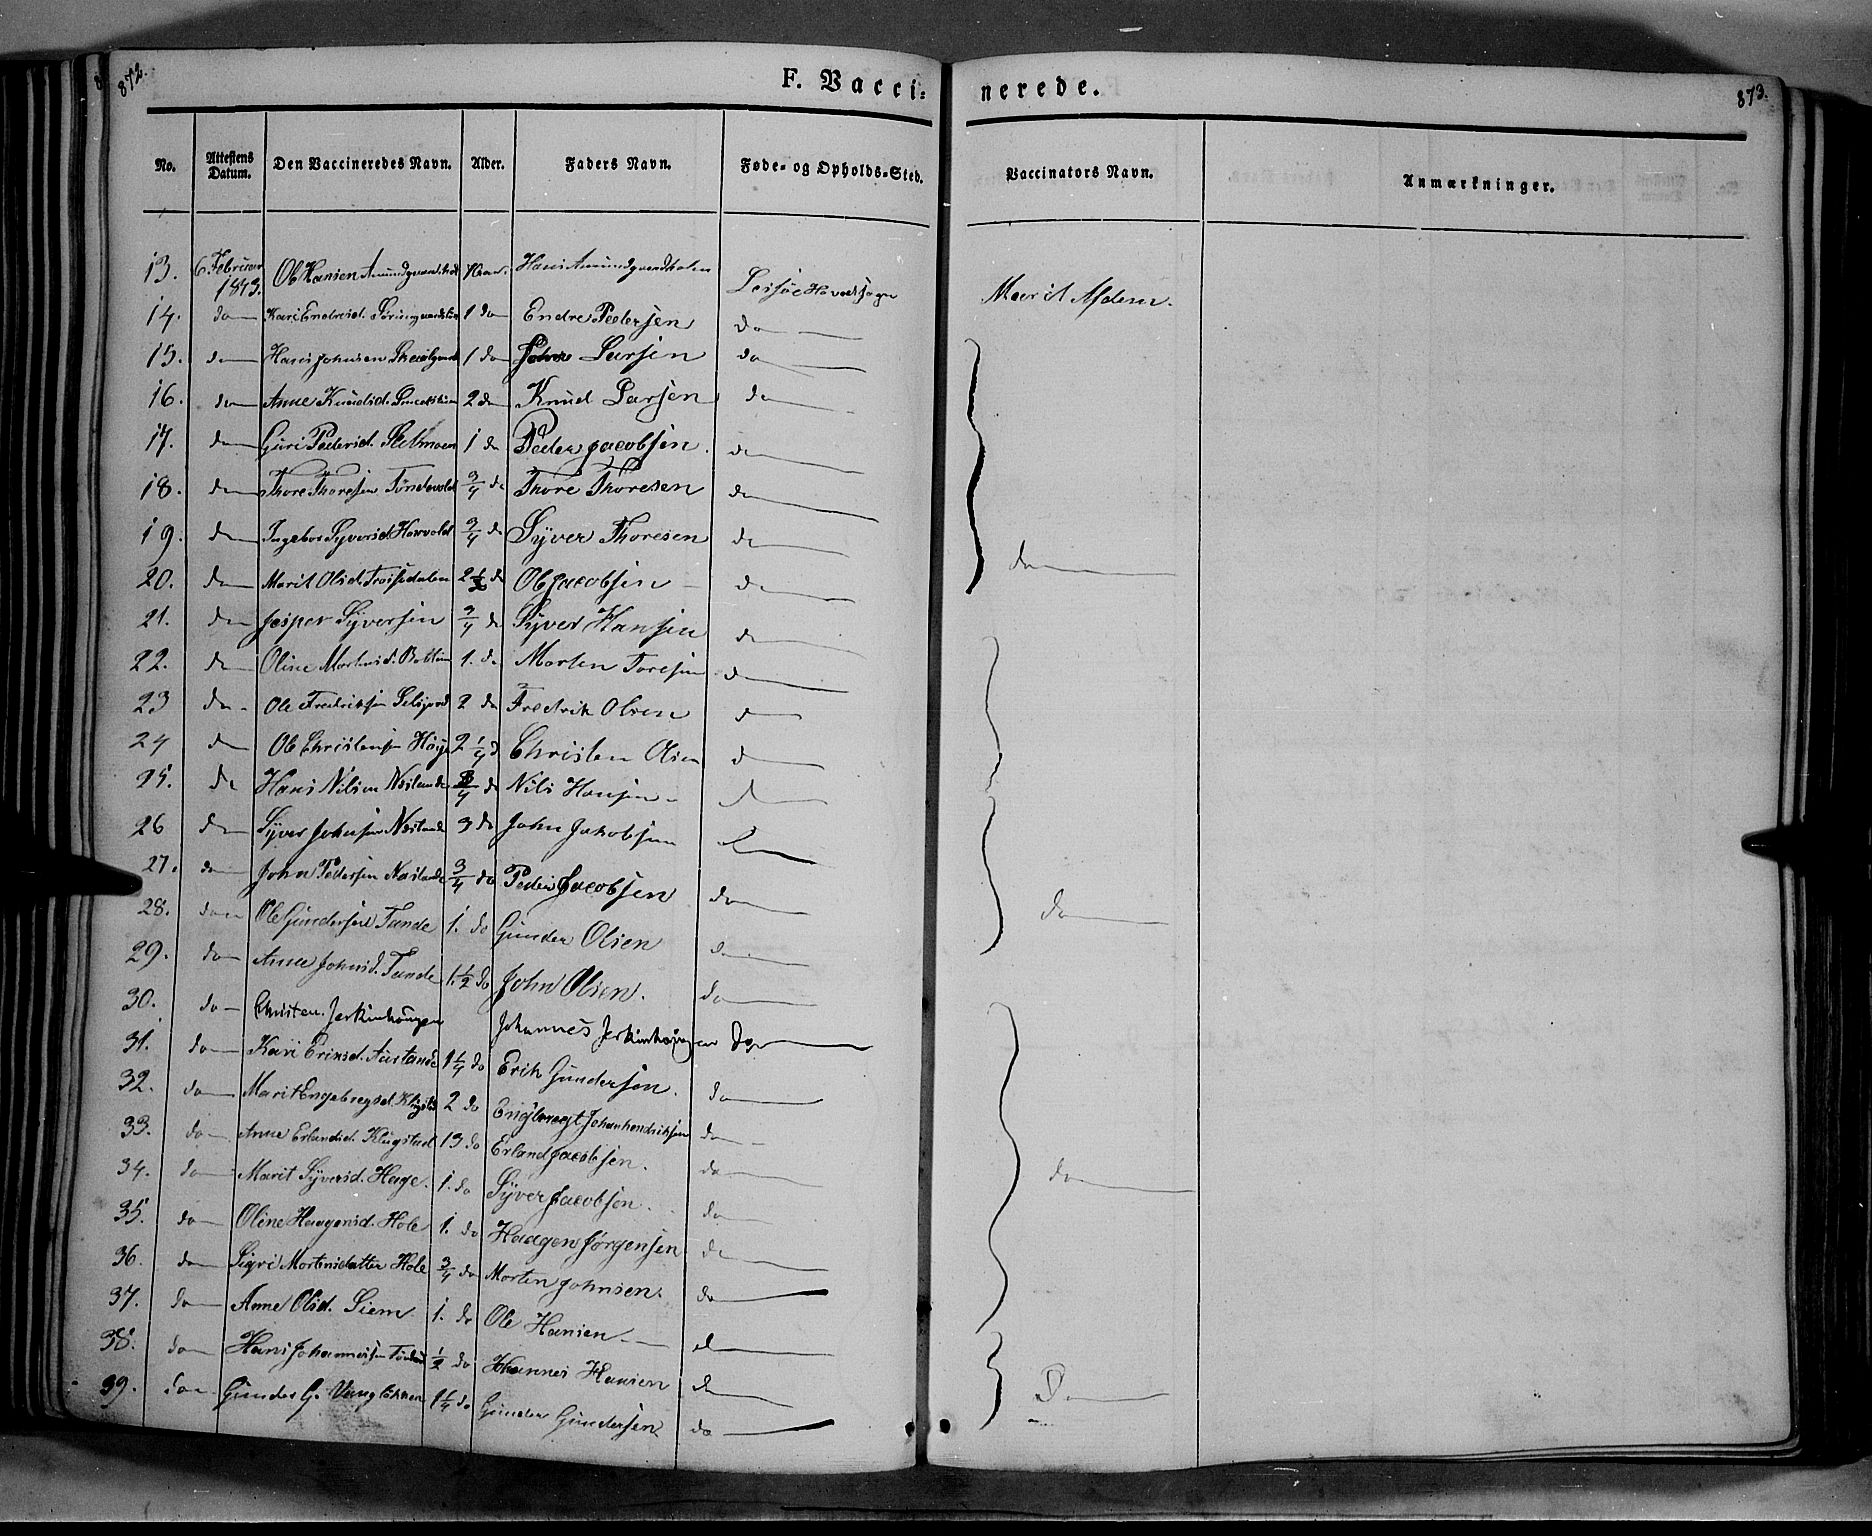 872.
F. Vacci=
nerede.
873.
No. Attestens Datum. Den Vaccineredes Navn. Alder. Faders Navn. Føde- og Opholds-Sted. Vaccinators Navn. Anmærkninger.
13. 6 Februar 1843. Ole Hansen Hans Lessöe Hovedsogn Marit Asdem.
14. do Kari Endresd. 1 do Endre Pedersen do
15. do Hans Johnsen 1 do John Larsen do
16. do Anne Knudsd. 2 do Knud Larsen do
17. do Guri Pedersd. Selmoen 1 do Peder Jacobsen. do
18. do Thore Thoresen Töndevold 3/4 do Thore Thoresen do
19. do Ingebor Syversd Horvold 3/4 do Syver Thoresen do do
20. do Marit Olsd. 2 1/2 do Ole Jacobsen do
21. do Jesper Syversen 3/4 do Syver Hansen do
22. do Oline Mortensd. 1. do Morten Toresen do
23 do Ole Fredriksen 2 do Fredrik Olsen do
24 do Ole Christensen 2 1/4 do Christen Olsen do
25. do Hans Nilsen /4 do Nils Hansen do
26 do Syver Johnsen 3 do John Jakobsen do
27. do John Pedersen 3/4 do Peder Jacobsen do
28. do Ole Gundersen Tande 1. do Gunder Olsen do do
29. do Anne Johnsd. Tande 1 1/2 do John Olsen. do
30. do Christen Jerkinhougen Johannes Jerkinhougen Do
31. do Kari Eriksd. 1 1/4 do Erik Gundersen. do
32. do Marit Engebregsd. 2 do Engebregt Johanhendriksen do
33. do Anne Erlandsd. Klügstad 13 do Erland Jacobsen. do
34. do Marit Syversd. Hage. 1. do Syver Jacobsen. do do
35. do Oline Haagensd. Hole 1. do Haagen Jörgensen do
36. do Sigri Mortensdatter Hole 3/4 do Morten Johnsen. do
37. do Anne Olsd. Liem 1. do Ole Hansen do
38. do Hans Johannessen 1/2 do Johannes Hansen do
39. do Gunder G. 1 1/4 do Gunder Gundersen do Do